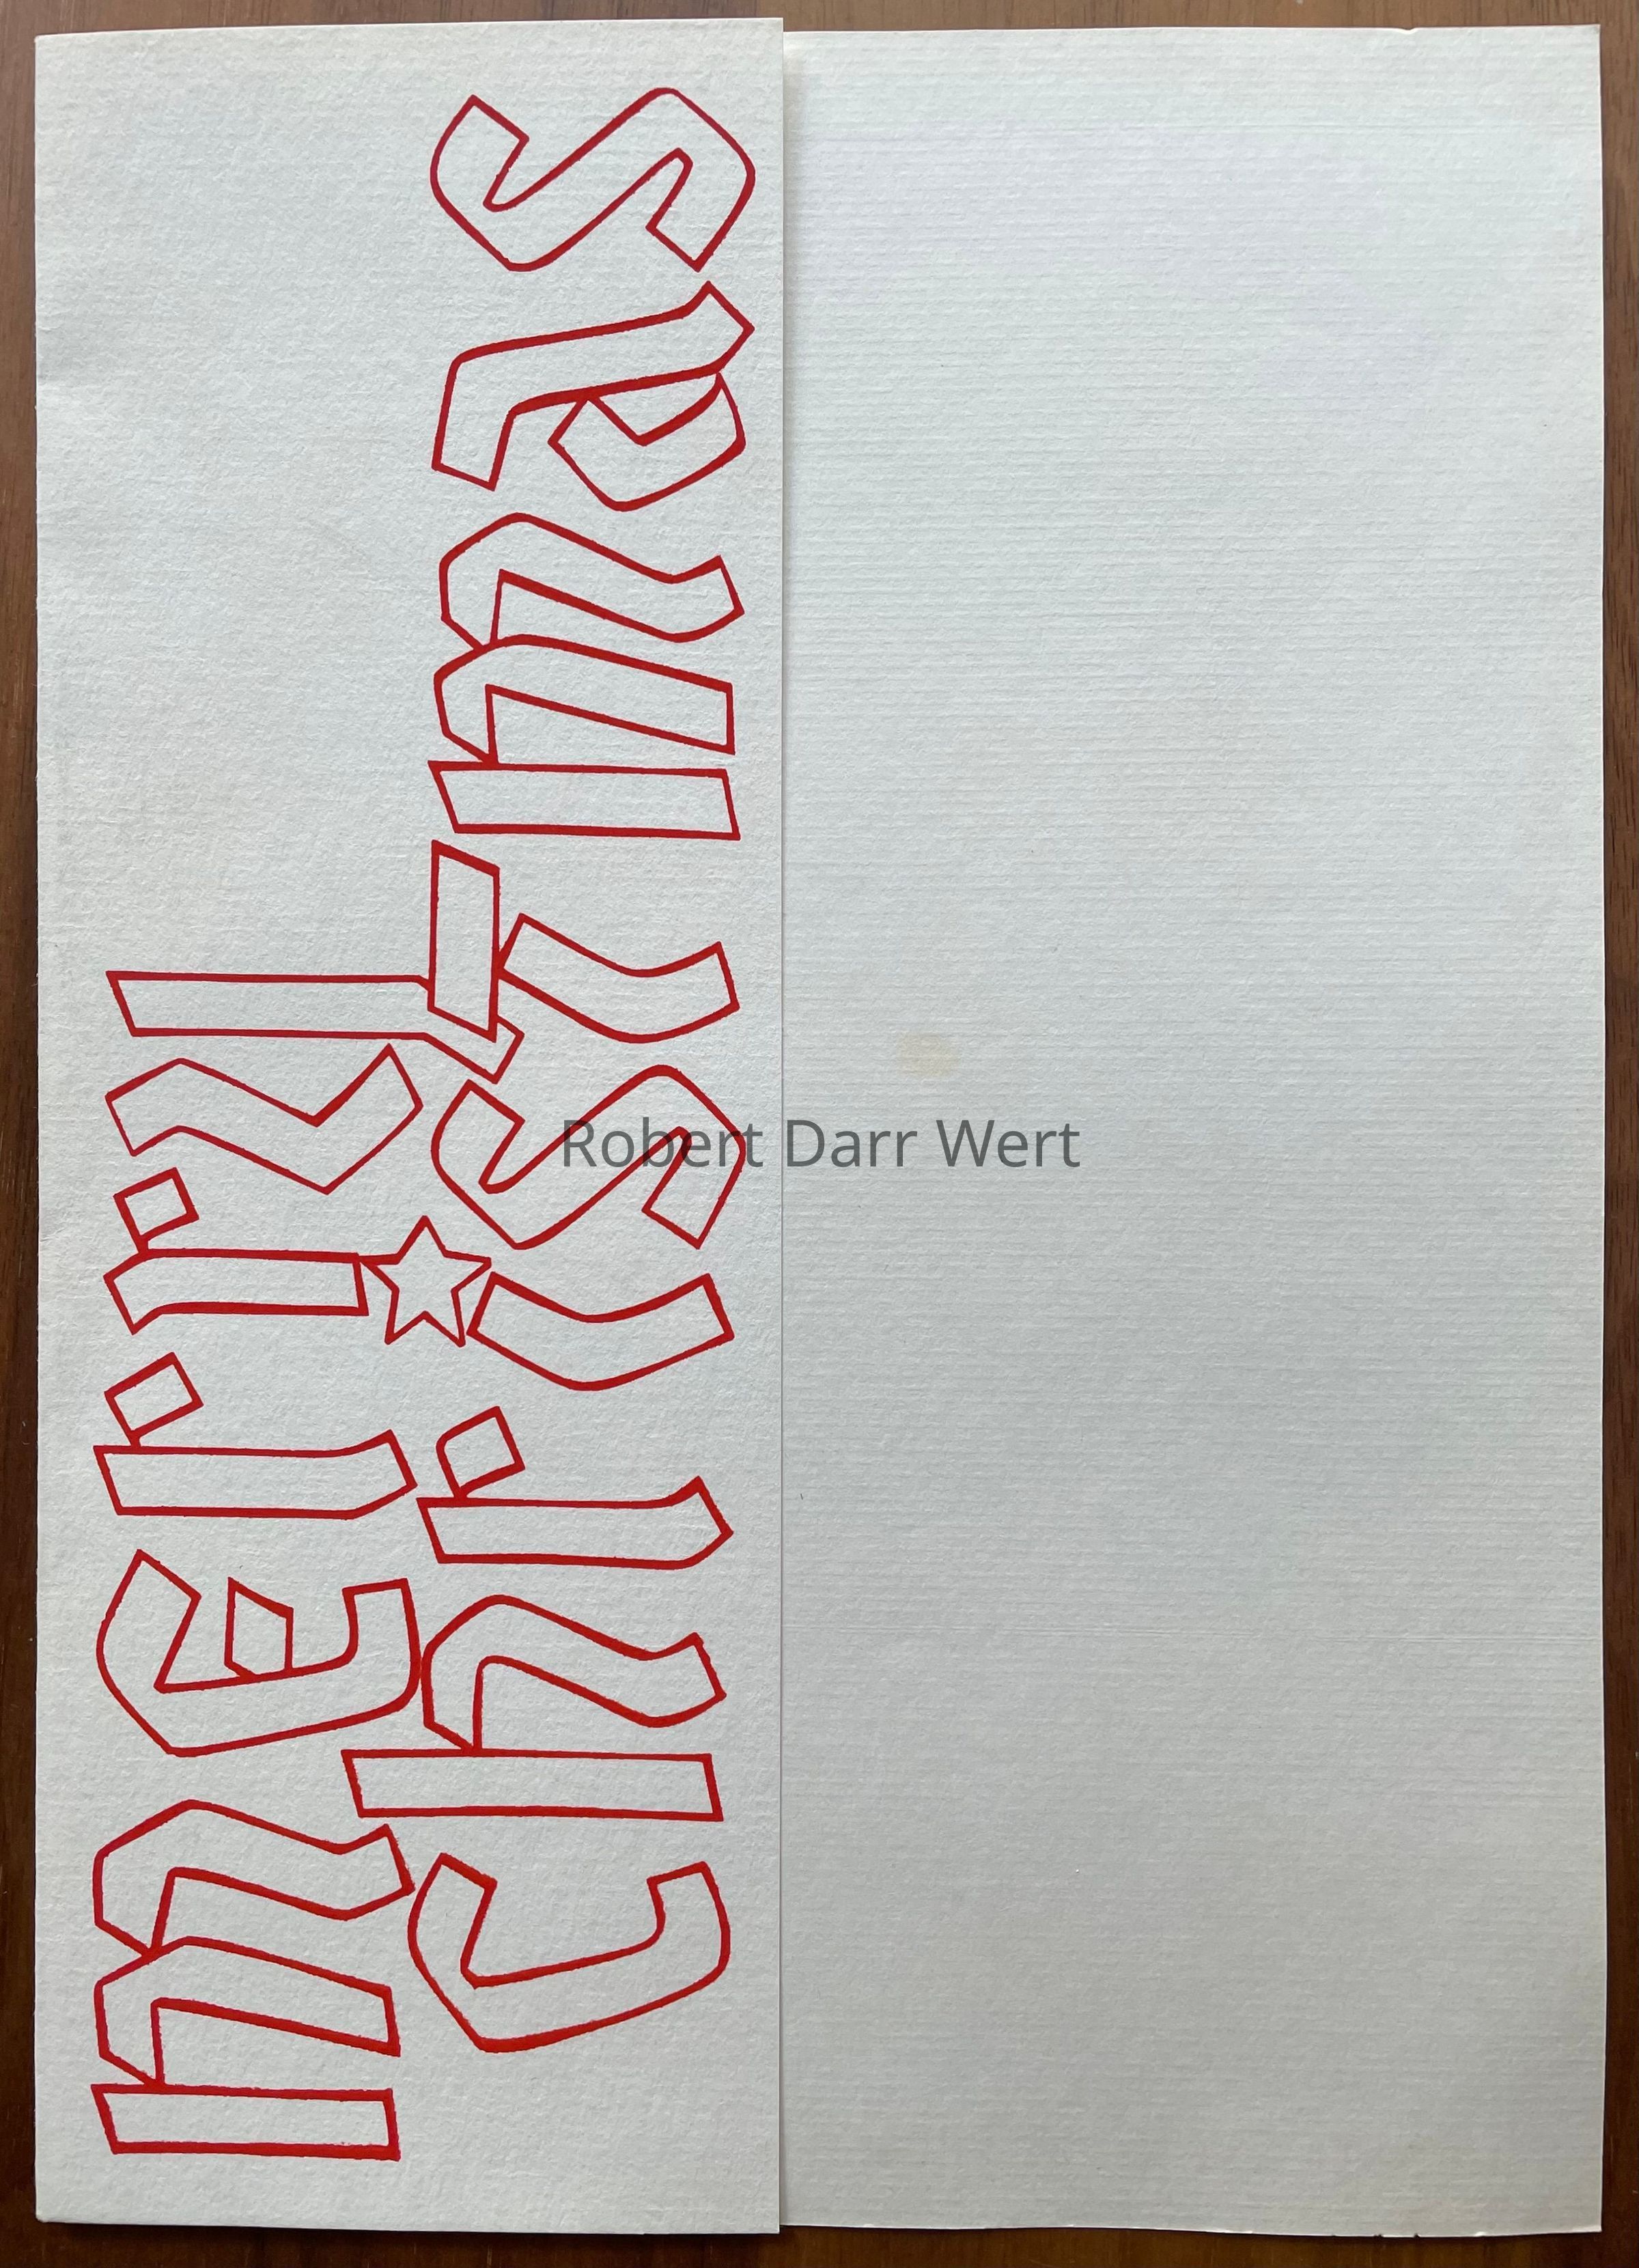 merry
christmas
Robert Darr Wert